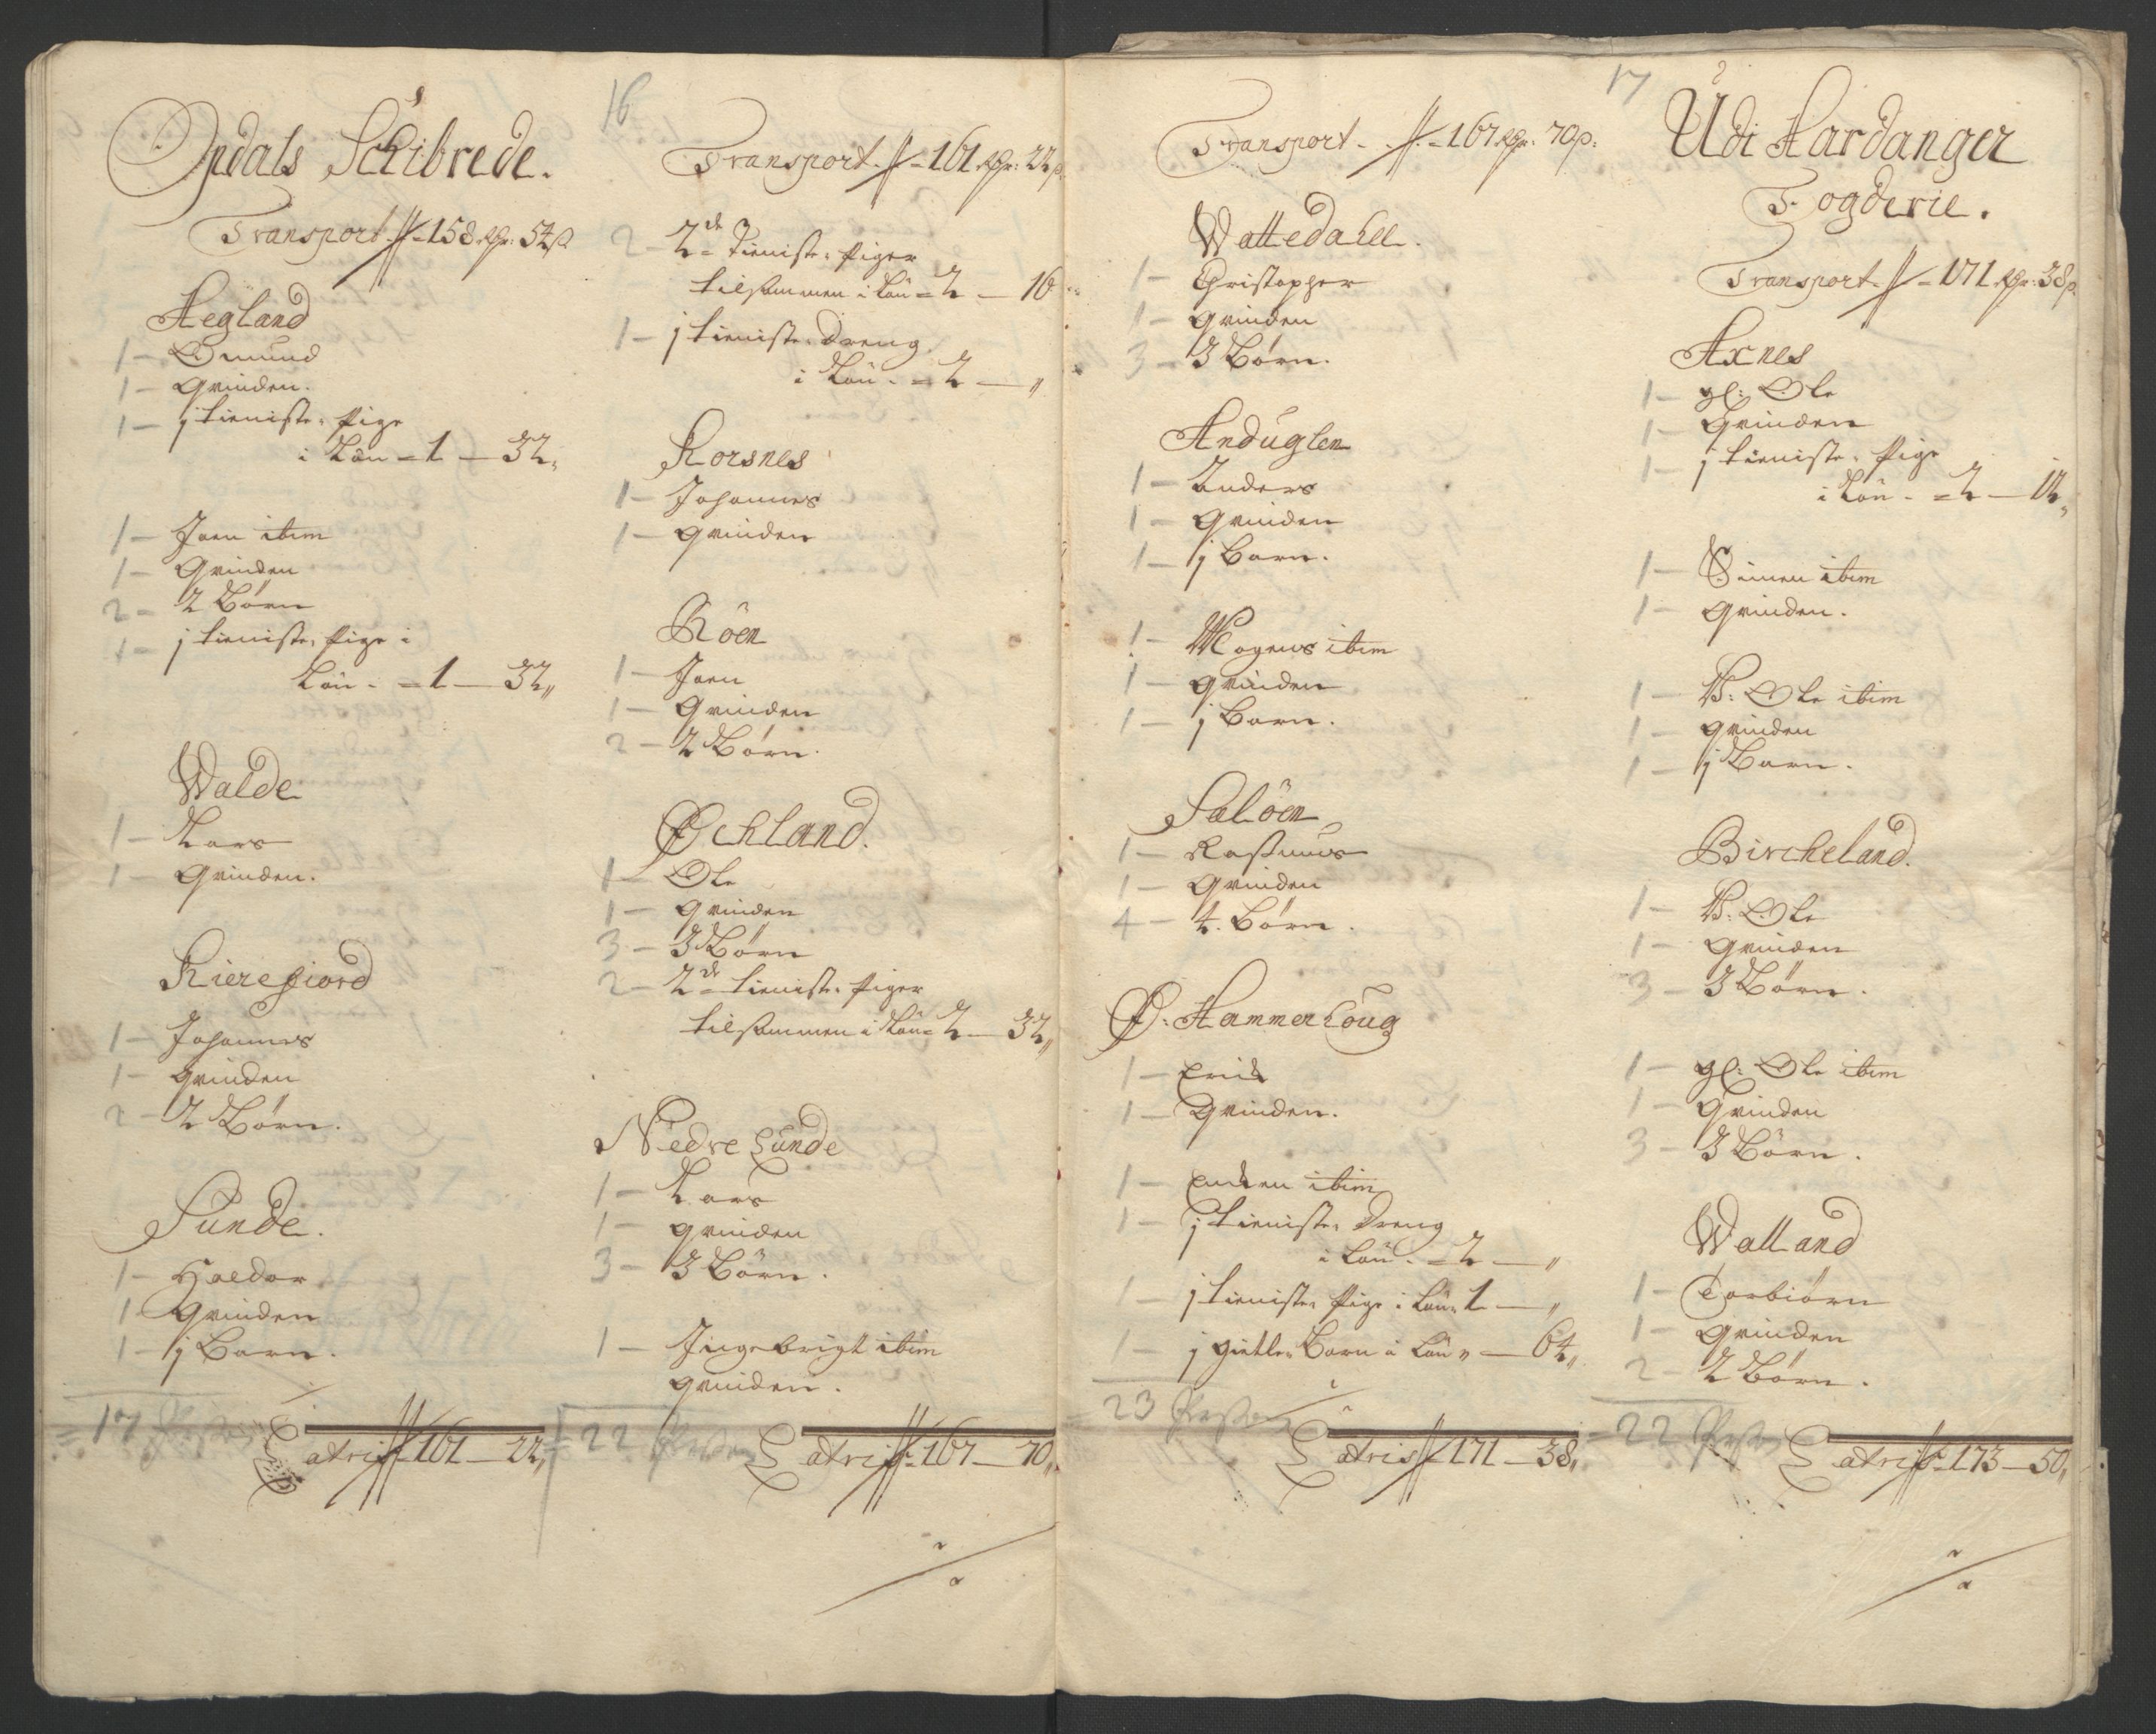 Opdals Schibrede.
Transport - 158 Rdr: 54 s
Aegland
1 - Omund
1 - Qvinden.
1 - j tieniste Pige
i Løn - 1 - 32,
1 - Joen ibim
1 - Qvinden
2 - 2 Børn
1 - j tieniste Pige i
Løn - 1 - 32,,
Walde
1 - Lars
1 - Qvinden.
Kierefiord
1 - Johannes
1 - Qvinden
2 - 2 Børn.
Sunde.
1 - Haldor
1 Qvinden
1 - j Barn.
= 17
Latris 161 - 22,
16
Transport - 161 Rdr: 22 s.
2 - 2de Tieniste Piger
tilsammen i Løn - 2 - 16
1 - j tieniste dreng
i Løn - 2 - ,,
Korsnes
1 - Johannes
1 - Qvinden
Röen
1 - Joen
1 - Qvinden
2 - 2 Børn.
Øchland.
1 - Ole
1 - Qvinden
3 - 3 Børn
2 - 2de tieniste Piger
tilsammen i Løn - 2 - 32,,
Nedre Sunde
1 - Lars
1 - Qvinden
3 - 3 Børn.
1 - Jngebrigt ibim
Qvinden.
= 22
Latris 167 - 70,,
Transport - 167 Rdr: 70 s:
Wattedahll.
1 - Christopher
1 - Qvinden
3 - 3 Børn.
Anduglen
1 - Anders
1 - Qvinden
1 - j Barn.
1 - Mogens ibim
1 - Qvinden
1 - j Barn.
Salöen
1 - Rasmus
1 - Qvinden
4 - 4. Børn.
Ø: Hammerhoug
1 - Erik
1 - Qvinden.
1 - Enken ibim
1 - j tieniste Dreng
i Løn - 2 - ,,
1 - j tieniste Pige i Løn 1 - ,,
1 - j giætle Barn i Løn ,, - 64,,
= 23 Persohn
Latris 171 - 38,
17
Udi Hardanger
Fogderie.
Transport - 171 Rdr: 38 s.
Axnes
1 - gl: Ole
1 - Qvinden
1 - j tieniste Pige
i Løn - 2 - 12,
1 - Simen ibim
1 - Qvinden.
1 - U: Ole ibim
1 - Qvinden
1 - j Barn.
Bircheland.
1 - U: Ole
1 - Qvinden
3 - 3 Børn.
1 - gl: Ole ibim
1 - Qvinden
3 - 3 Børn.
Walland
1 - Torbiørn
1 - Qvinden
2 - 2 Børn.
= 22
Latris 173 - 50,,